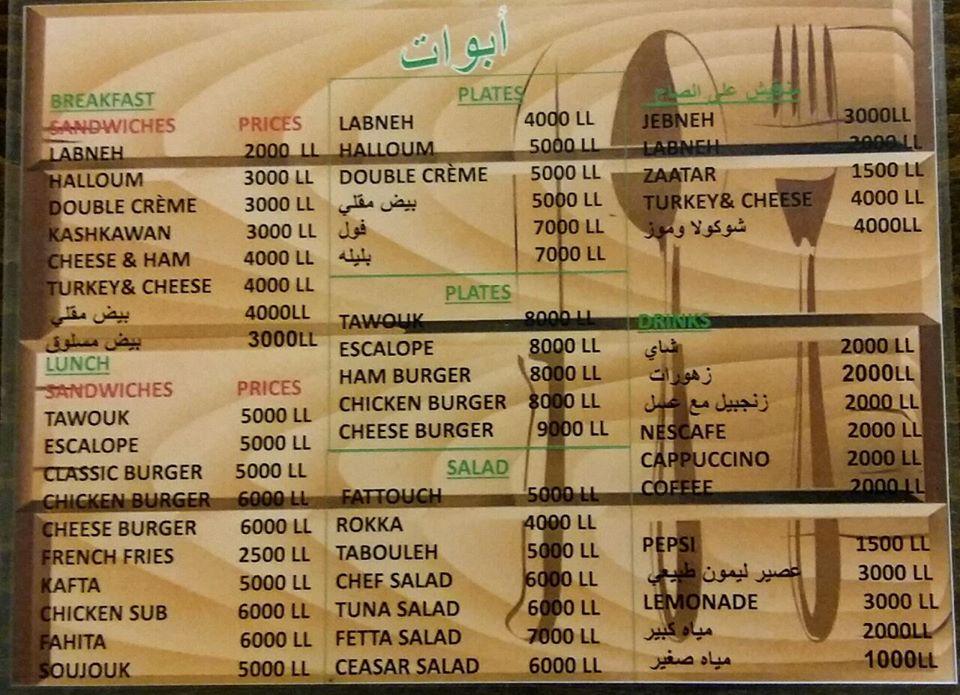 أبوات
BREAKFAST
SANDWICHES PRICES
LABNEH 2000 LL
HALLOUM 3000 LL
DOUBLE CRÈME 3000 LL
KASHKAWAN 3000 LL
CHEESE & HAM 4000 LL
TURKEY& CHEESE 4000 LL
بيض مقلي 4000LL
بيض مسلوق 3000LL
LUNCH
SANDWICHES PRICES
TAWOUK 5000 LL
ESCALOPE 5000 LL
CLASSIC BURGER 5000 LL
CHICKEN BURGER 6000 LL
CHEESE BURGER 6000 LL
FRENCH FRIES 2500 LL
KAFTA 5000 LL
CHICKEN SUB 6000 LL
FAHITA 6000 LL
SOUJOUK 5000 LL
PLATES
LABNEH 4000 LL
HALLOUM 5000 LL
DOUBLE CRÈME 5000 LL
بيض مقلي 5000 LL
فول 7000 LL
بليله 7000 LL
PLATES
TAWOUK 8000 LL
ESCALOPE 8000 LL
HAM BURGER 8000 LL
CHICKEN BURGER 8000 LL
CHEESE BURGER 9000 LL
SALAD
FATTOUCH 5000 LL
ROKKA 4000 LL
TABOULEH 5000 LL
CHEF SALAD 6000 LL
TUNA SALAD 6000 LL
FETTA SALAD 7000 LL
CEASAR SALAD 6000 LL
مناقيش على الصاج
JEBNEH 3000LL
LABNEH 2000 LL
ZAATAR 1500 LL
TURKEY& CHEESE 4000 LL
شوكولا وموز 4000LL
DRINKS
شاي 2000 LL
زهورات 2000LL
زنجبيل مع عسل 2000 LL
NESCAFE 2000 LL
CAPPUCCINO 2000 LL
COFFEE 2000 LL
PEPSI 1500 LL
عصير ليمون طبيعي 3000 LL
LEMONADE 3000 LL
مياه كبير 2000LL
مياه صغير 1000LL